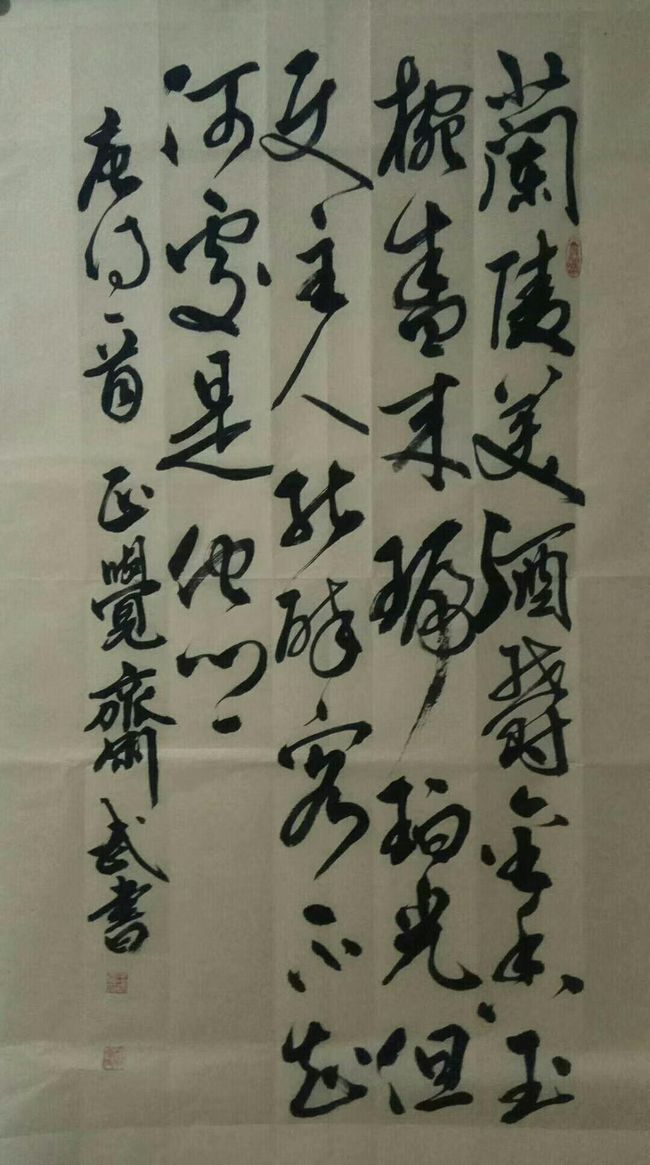 蘭陵美酒鬱金香玉
椀盛来琥珀光但
使主人能醉客不知
何處是他鄉
唐诗一首 正覺齋武書